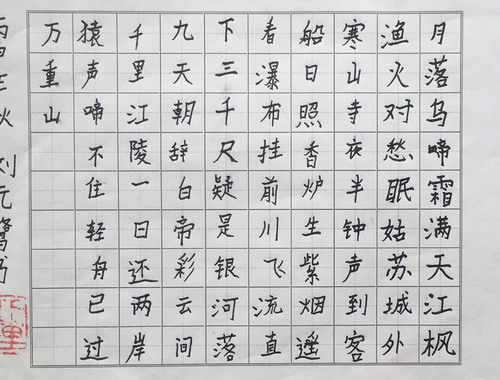 月落乌啼霜满天江枫
渔火对愁眠姑苏城外
寒山寺夜半钟声到客
船日照香炉生紫烟遥
看瀑布挂前川飞流直
下三千尺疑是银河落
九天朝辞白帝彩云间
千里江陵一日还两岸
猿声啼不住轻舟已过
万重山
刘元